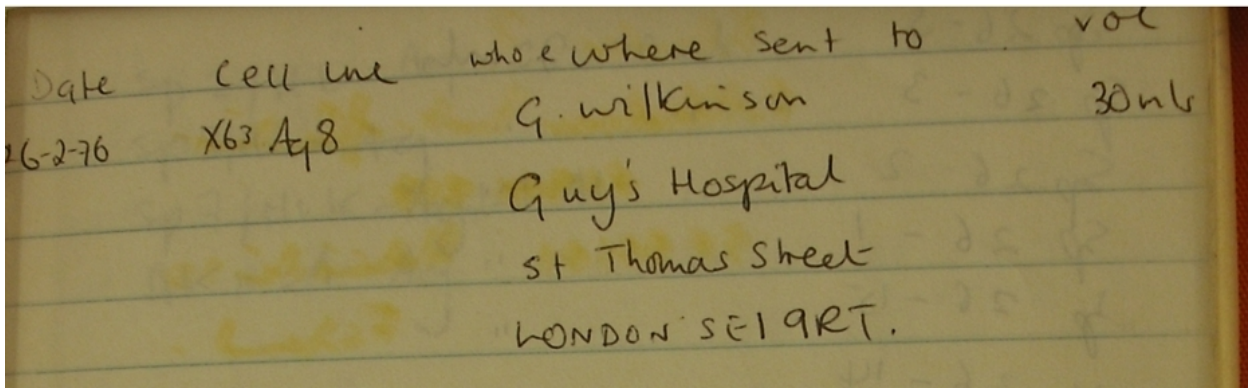 Date Cell line who & where sent to vol
26-2-76 X63 Ag8 G. Wilkinson 30mls
Guy's Hospital
St Thomas Street
LONDON SE1 9RT.